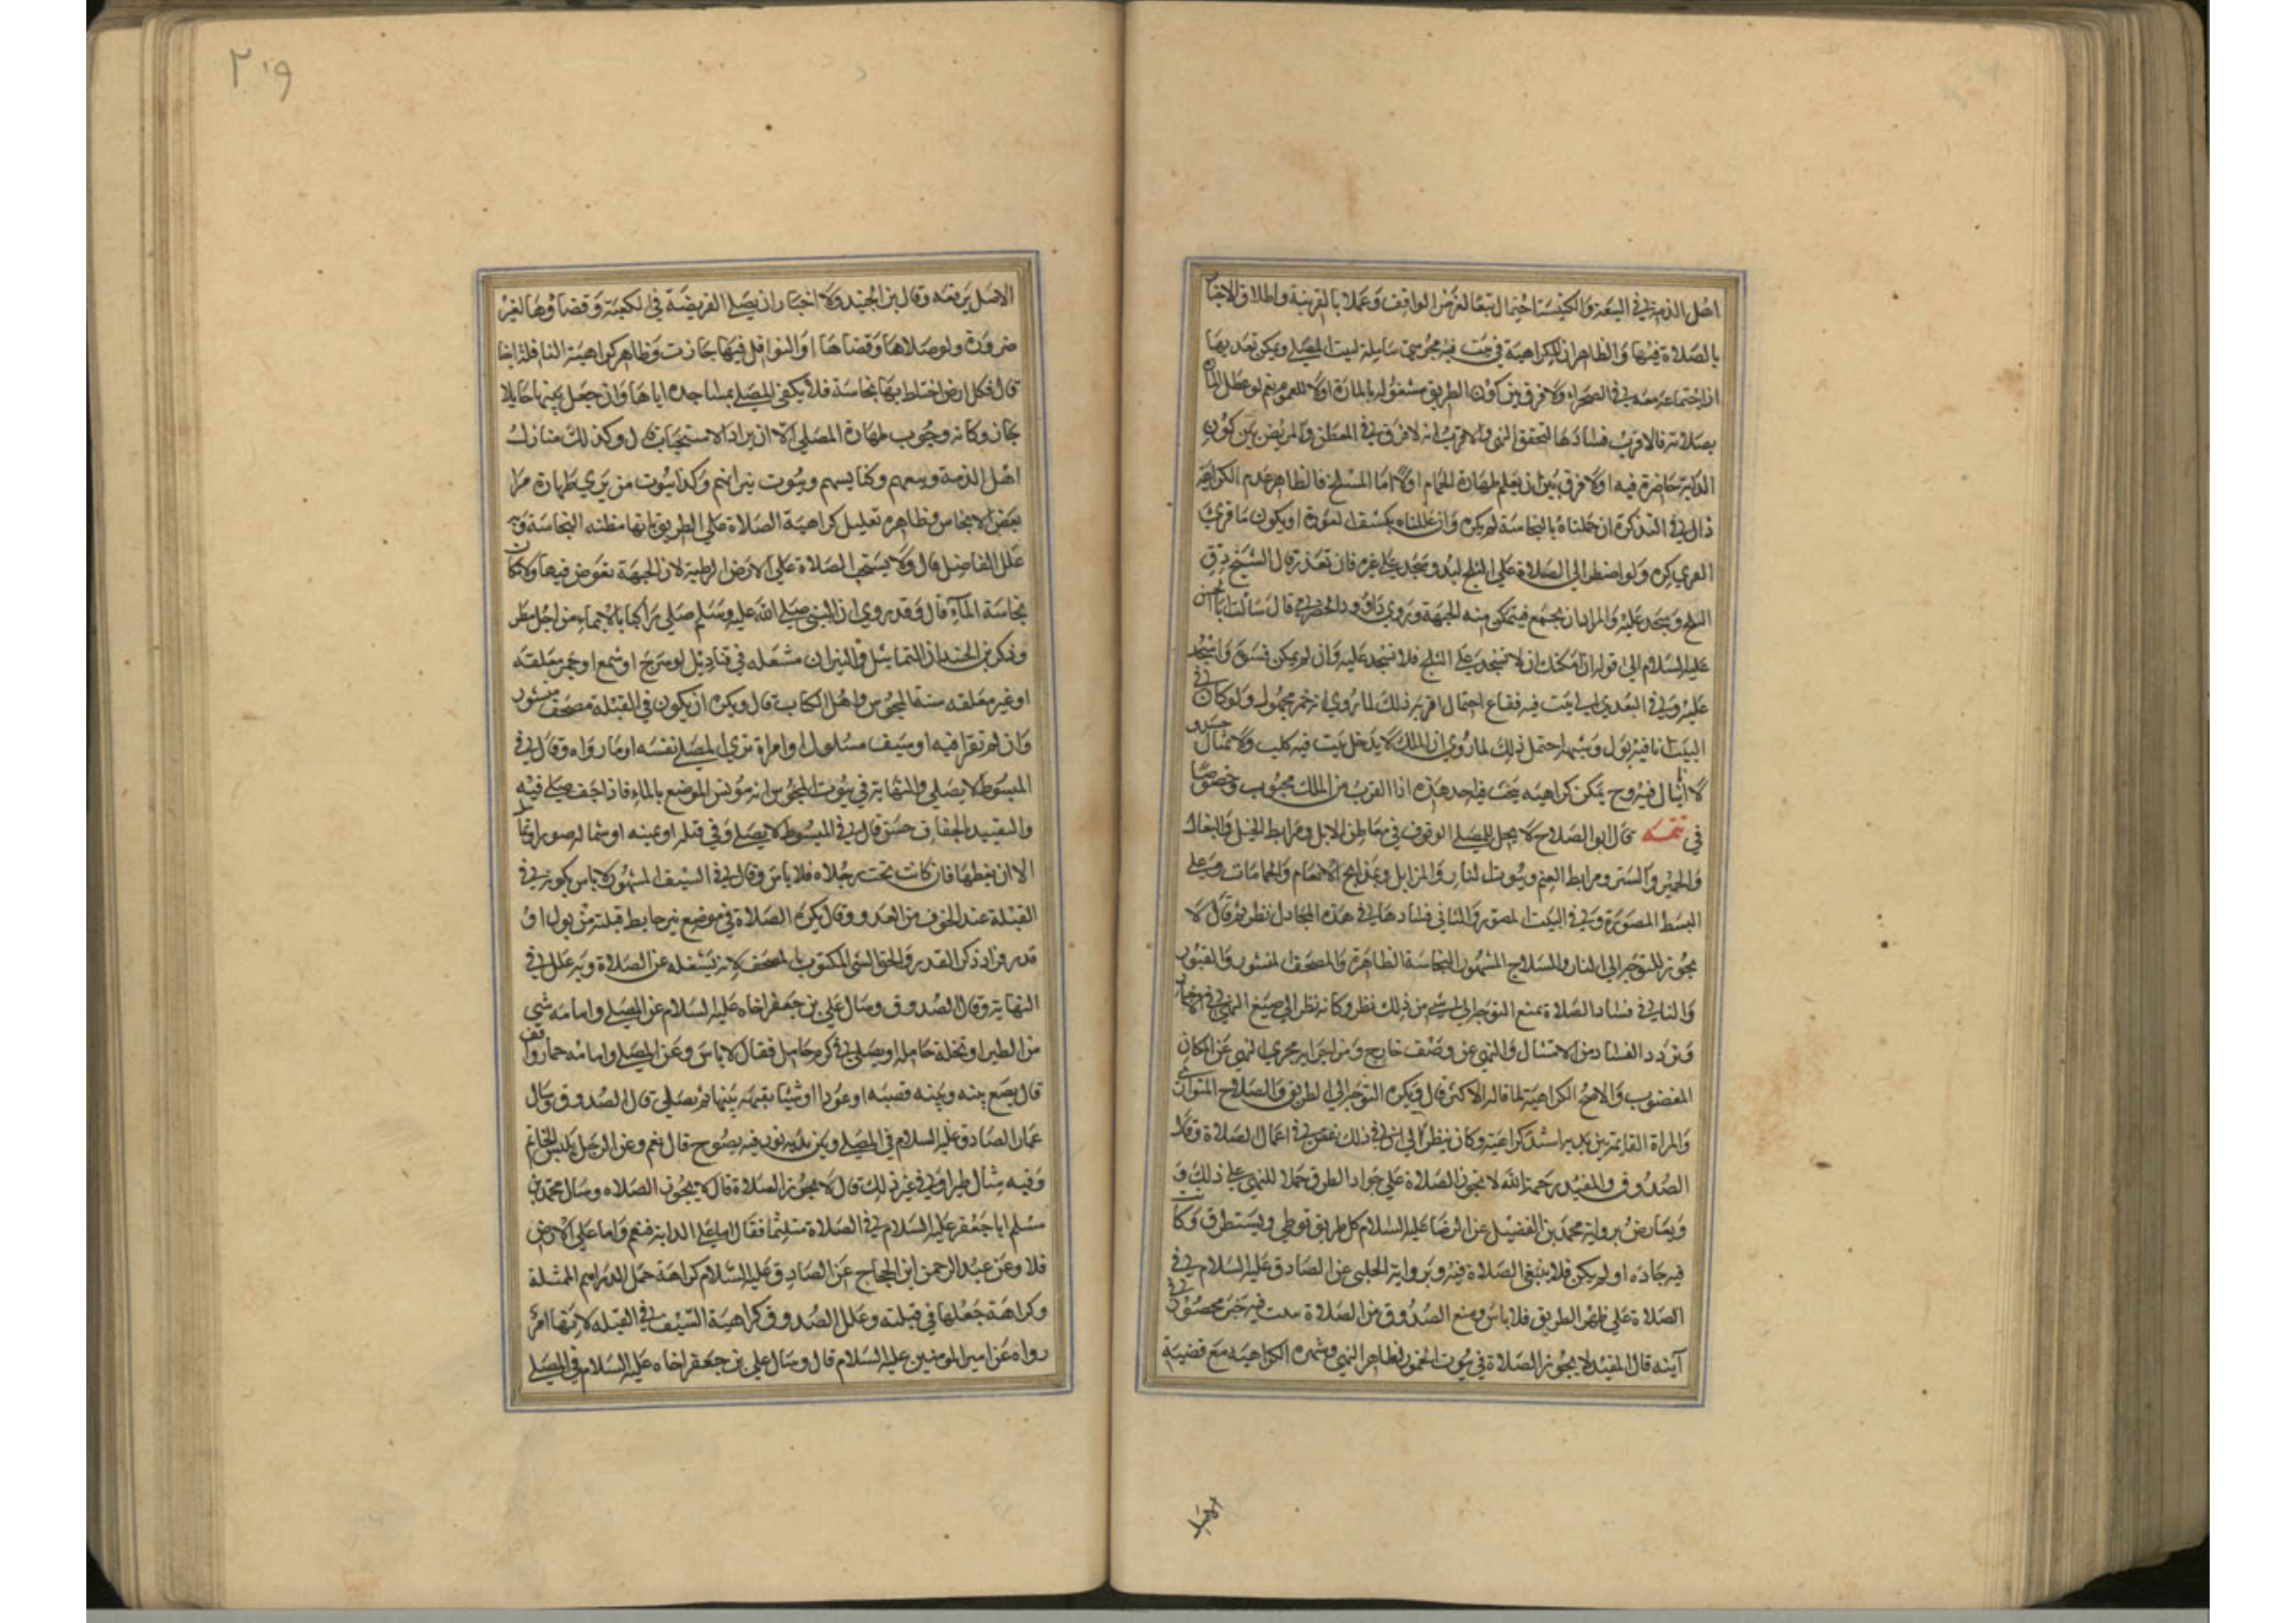 اهل الذمة في البيعة والكنيسة احتمال تبعا لغرض الواقف وعملا بالقرينة واطلاق الاخبار
بالصلاة فيها والظاهر ان الكراهية في بيت فيه مجوسي شاملة لبيت المصلي ويمكن تعديها
اذا اجتماعه معه في الصحراء ولا فرق بين كون الطريق مشغوله بالمارة اولا للعموم نعم لو عطل المارة
بصلاته فالاقرب فسادها لتحقق النهي والاقرب انه لا فرق في المعطن والمربض بين كون
الدابة حاضرة فيه اولا ولا فرق بين ان يعلم طهارة الحمام اولا اما المسلخ فالظاهر عدم الكراهية
قال في التذكرة ان عللناه بالنجاسة لم يكره وان عللناه بكشف العورة او يكون ماوى
كره ولو اضطر الى الصلاة على الثلج لبده وسجد على غيره فان تعذر قال الشيخ دق
الثلج وسجد عليه والمراد ان يجتمع فيتمكن منه الجبهة وروى داود الصرمي قال سالت ابا الحسن
عليه السلام الى قوله ان امكنك ان لا تسجد على الثلج فلا تسجد عليه وان لم يمكن فسوه واسجد
عليه وفي التعدي الى بيت فيه فقاع احتمال اقربه ذلك لما روي انه خمر مجهول ولو كان في
البيت انا فيه بول وشبهه احتمل ذلك لما روي ان الملك لا يدخل بيت فيه كلب ولا تمثال جسد ولا
انا يبال فيه وح يمكن كراهية بيت فيه احد هذه اذا القرب من الملك محبوب وخصوصا
في تتمة قال ابو الصلاح لا يحل للمصلي الوقوف في معاطن الابل ومرابط الخيل والبغال
والحمير والستر ومرابط الغنم وبيوت النار والمزابل ومذابح الانعام والحمامات وعلى
البسط المصورة وفي البيت المصور والثاني فسادها في هذه المحال نظر ثم قال لا
يجوز التوجه الى النار والسلاح المشهور النجاسة الظاهرة والمصحف المنشور والقبور
والثاني في فساد الصلاة بمنع التوجه الى شي من ذلك نظر وكانه نظر الى صيغ النهي في الاخبار
وتردد الفساد من الامتثال والنهي عن وصف خارج ومن اجرايه مجرى النهي عن المكان
المغضوب والاصح الكراهية لما قاله الاكثر قال ويكره التوجه الى الطريق والصلاح المتوارى
والمراة القايمة بين يديه اشد كراهية وكان ينظر الى ان في ذلك نقص في اعمال الصلاة وقال
الصدوق والمفيد رحمة الله لا تجوز الصلاة على جواد الطرق حملا للنهي على ذلك و
ويعارض برواية محمد بن الفضيل عن الرضا عليه السلام كل طريق توطي ويستطرق وكانت
فيه جاده او لم يكن فلا ينبغي الصلاة فيه وبرواية الحلبي عن الصادق عليه السلام لا في
الصلاة على ظهر الطريق فلا باس ومنع الصدوق من الصلاة بيت فيه خمر محصور في
آنية قال المفيد لا يجوز الصلاة في بيوت الخمور لظاهر النهي وشهره الكراهية مع قضية
الاصل
٢٠٩
الاصل يدفعه وقال بن الجنيد ولا اختار ان يصلى الفريضة في الكعبة وقضاؤها لغير
ضرورة ولو صلاها وقضاها او النوافل فيها جازت وظاهر كراهية النافلة ايضا
قال فكل ارض اختلط بها نجاسة فلا يكفى المصلى بمساجده اياها وان جعل بينها حايلا
جاز وكانه وجوب طهارة المصلى الا ان يراد الاستحباب قال وكذلك منازل
اهل الذمة وبيعهم وكنايسهم وبيوت نيرانهم وكذا بيوت من يرى طهارة مرا
بعض الانجاس وظاهره تعليل كراهية الصلاة على الطريق بانها مظنه النجاسة وبه
علل الفاضل قال ولا يستحب الصلاة على الارض الرطبة لان الجبهة تغوص فيها ولا مكان
نجاسة الماء قال وقد روي ان النبي صلى الله عليه وسلم صلى راكبا بالايماء من اجل مطر
وذكر بن الجنيد ان التماثيل والنيران مشعله في قناديل او سرج او شمع او جمر معلقه
او غير معلقه سنة المجوس واهل الكتاب قال ويكره ان يكون في القبلة مصحف منشور
وان لم تقرا فيه او سيف مسلول او امراة ترى المصلى نفسه او ما رواه وقال في
المبسوط لا يصلى والنهاية في بيوت المجوس انه مؤنس الموضع بالماء فاذا جف صلى فيه
والتقييد بالجفاف حسن قال في المبسوط لا يصلى وفي قبله او يمينه او شماله صور او تماثيل
الا ان يغطها فان كانت تحت رجلاه فلا باس وقال في السيف المشهور لا باس بكونه في
القبلة عند الخوف من العدو وقال يكره الصلاة في موضع نير حايط قبلته من بول او
قدر وزاد ذكر القدر والحق الشي المكتوب بالمصحف لانه يشغله عن الصلاة وبه علل في
النهاية وقال الصدوق وسال علي بن جعفر اخاه عليه السلام عن المصلي وامامه شي
من الطير او نخلة حامله او يصلي في كرم حامل فقال لا باس وعن المصلي وامامه حمار واقف
قال يضع بينه وبينه قصبه او عودا او شيئا يقيمه بينها ثم يصلي قال الصدوق وسال
عمار الصادق عليه السلام في المصلي وبين يديه تور فيه نضوح قال نعم وعن الرجل يلبس الخاتم
وفيه مثال طير او في غير ذلك قال لا يجوز الصلاة قال لا يجوز الصلاه وسال محمد بن
مسلم ابا جعفر عليه السلام في الصلاة متلثما فقال اما على الدابة فنعم واما على الارض
فلا وعن عبد الرحمن ابن الحجاج عن الصادق عليه السلام كراهة حمل الدراهم الممثلة
وكراهة جعلها في قبلته وعلل الصدوق كراهية السيف في القبله لانها امر
رواه عن امير المومنين عليه السلام قال وسال علي بن جعفر اخاه عليه السلام في المصلي